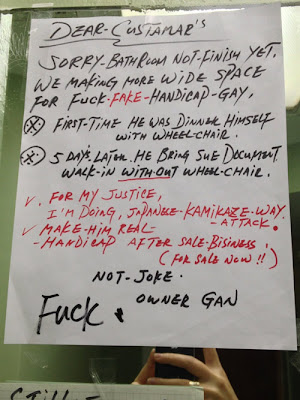 DEAR-CUSTAMAR'S
SORRY-BATHROOM NOT-FINISH YET.
WE MAKING MORE WIDE SPACE
FOR FUCK-FAKE-HANDICAP-GAY,
FIRST-TIME HE WAS DINNER HIMSELF
WITH WHEEL-CHAIR.
5 DAY'S LATER HE BRING SUE DOCUMENT
WALK-IN WITHOUT WHEEL-CHAIR.
FOR MY JUSTICE,
I'M DOING, JAPANESE-KAMIKAZE-WAY.
-ATTACK.
MAKE-HIM REAL
-HANDICAP AFTER SALE-BISINESS.
(FOR SALE NOW!!)
NOT-JOKE.
FUCK & OWNER GAN